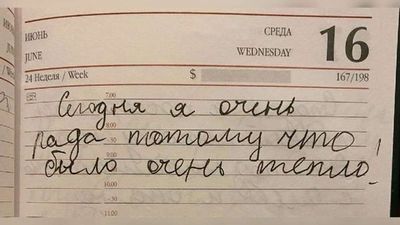 ИЮНЬ
JUNE
СРЕДА
WEDNESDAY
16
24 Неделя / Week
$
167/198
7.00
Сегодня я очень
8.00
рада потому что
9.00
было очень тепло!
10.00
-30
11.00